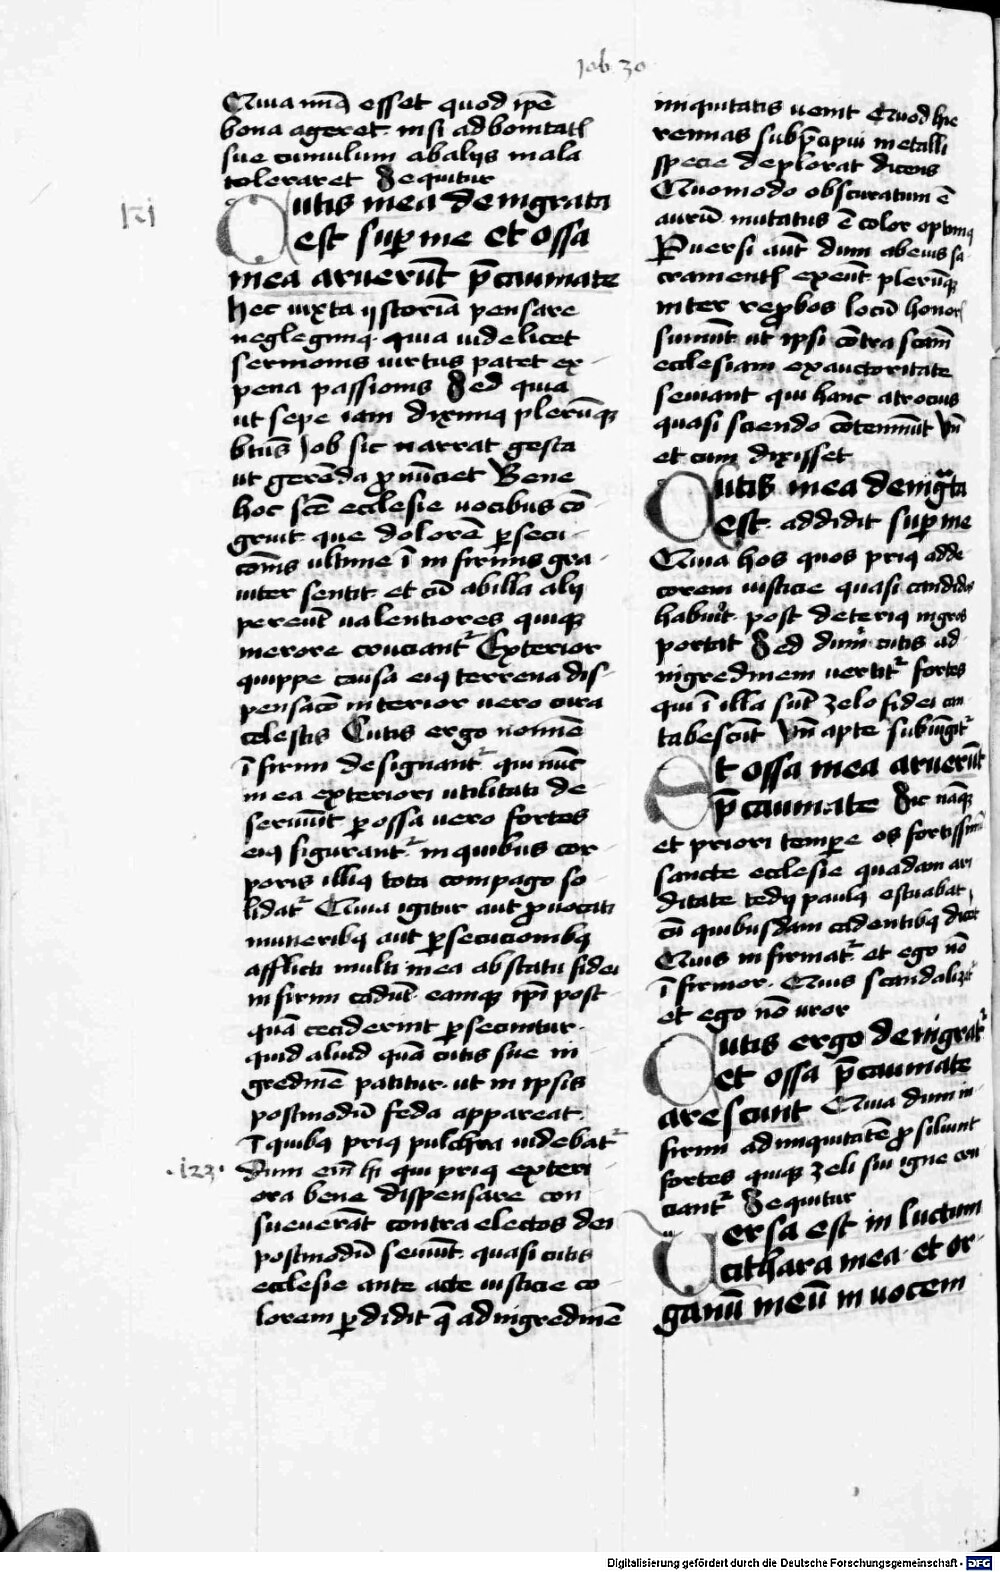 Job 30
Quia nūq̄ esset quod ip̄e
bona ageret nisi ad bonitatꝭ
sue cumulum ab alijs mala
toleraret Sequitur
121
Cutis mea denigrata
est sup me Et ossa
mea aruerūt p̄ caumate
Hec iuxta ystoriā pensare
neglegimꝰ quia videlicet
sermonis virtus patet ex
pena passionis Sed quia
ut sepe iam diximꝰ plerūqꝫ
btūs Job sic narrat gesta
ut gerēda ꝓnūciet Bene
hoc scē ecclesie vocibus cō
gruit que dolorē ꝑsecu
cōnis ultime ī infirmis gra
uiter sentit et cū ab illa alij
pereūt valentiores quiqꝫ
merore cruciantᷣ Exterior
quippe causa eiꝰ terrena dis
pensacō interior vero cura
celestis Cutis ergo nomīe
īfirmi designantᷣ qui nūc
in ea exteriori utilitati de
seruiūt ꝑ ossa vero fortes
eiꝰ figurantᷣ in quibus cor
poris illiꝰ tota compago so
lidatᷣ Quia igitur aut ꝓuocati
muneribꝰ aut ꝑsecucionibꝰ
afflicti multi in ea ab statu fidei
infirmi cadūt eamqꝫ ip̄i post
quā ceciderint ꝑsecuntur
quid aliud quā cutis sue ni
gredinē patitur ut in ipsis
postmodū feda appareat
ī quibꝰ priꝰ pulchra videbatᷣ
.122.
Dum em̄ hi qui priꝰ exteri
ora bene dispensare con
sueuerāt contra electos dei
postmodū seuiūt quasi cutis
ecclesie ante acte iusticie co
lorem ꝑdidit q̄ ad nigredinē
iniquitatis venit Quod hie
remias sub p̄cipui metalli
specie deplorat dicens
Quomodo obscuratum ē
aurū mutatus ē color optimꝰ
Puersi aūt dum ab eius sa
cramentꝭ exeūt plerūqꝫ
inter reꝓbos locū honorꝭ
sumūt ut ipsi cōtra scām
ecclesiam ex auctoritate
seuiant qui hanc atrocius
quasi sciendo cōtemnūt Vn̄
et cum dixisset
Cutis mea denigᷓta
est addidit sup me
Quia hos quos priꝰ ad de
corem iusticie quasi candidos
habuit post deteriꝰ nigros
portat Sed dum cutis ad
nigredinem vertitᷣ fortes
qui ī illa sūt zelo fidei con
tabescūt Vn̄ apte subiūgitᷣ
Et ossa mea aruerūt
p̄ caumate Sic nāqꝫ
et priori tempore os fortissimū
sancte ecclesie quadam ari
ditate tedij paulꝰ estuabat
cū quibusdam cadentibꝰ dicet
Quis infirmatᷣ et ego nō
īfirmor Quis scandalizatᷣ
et ego nō uror
Cutis ergo denigratᷣ
et ossa p̄ caumate
arescunt Quia dum in
firmi ad iniquitatē ꝓsiliunt
fortes quiqꝫ zeli sui igne cru
ciantᷣ Sequitur
Versa est in luctum
cithara mea et or
ganū meū in vocem
Digitalisierung gefördert durch die Deutsche Forschungsgemeinschaft - DFG